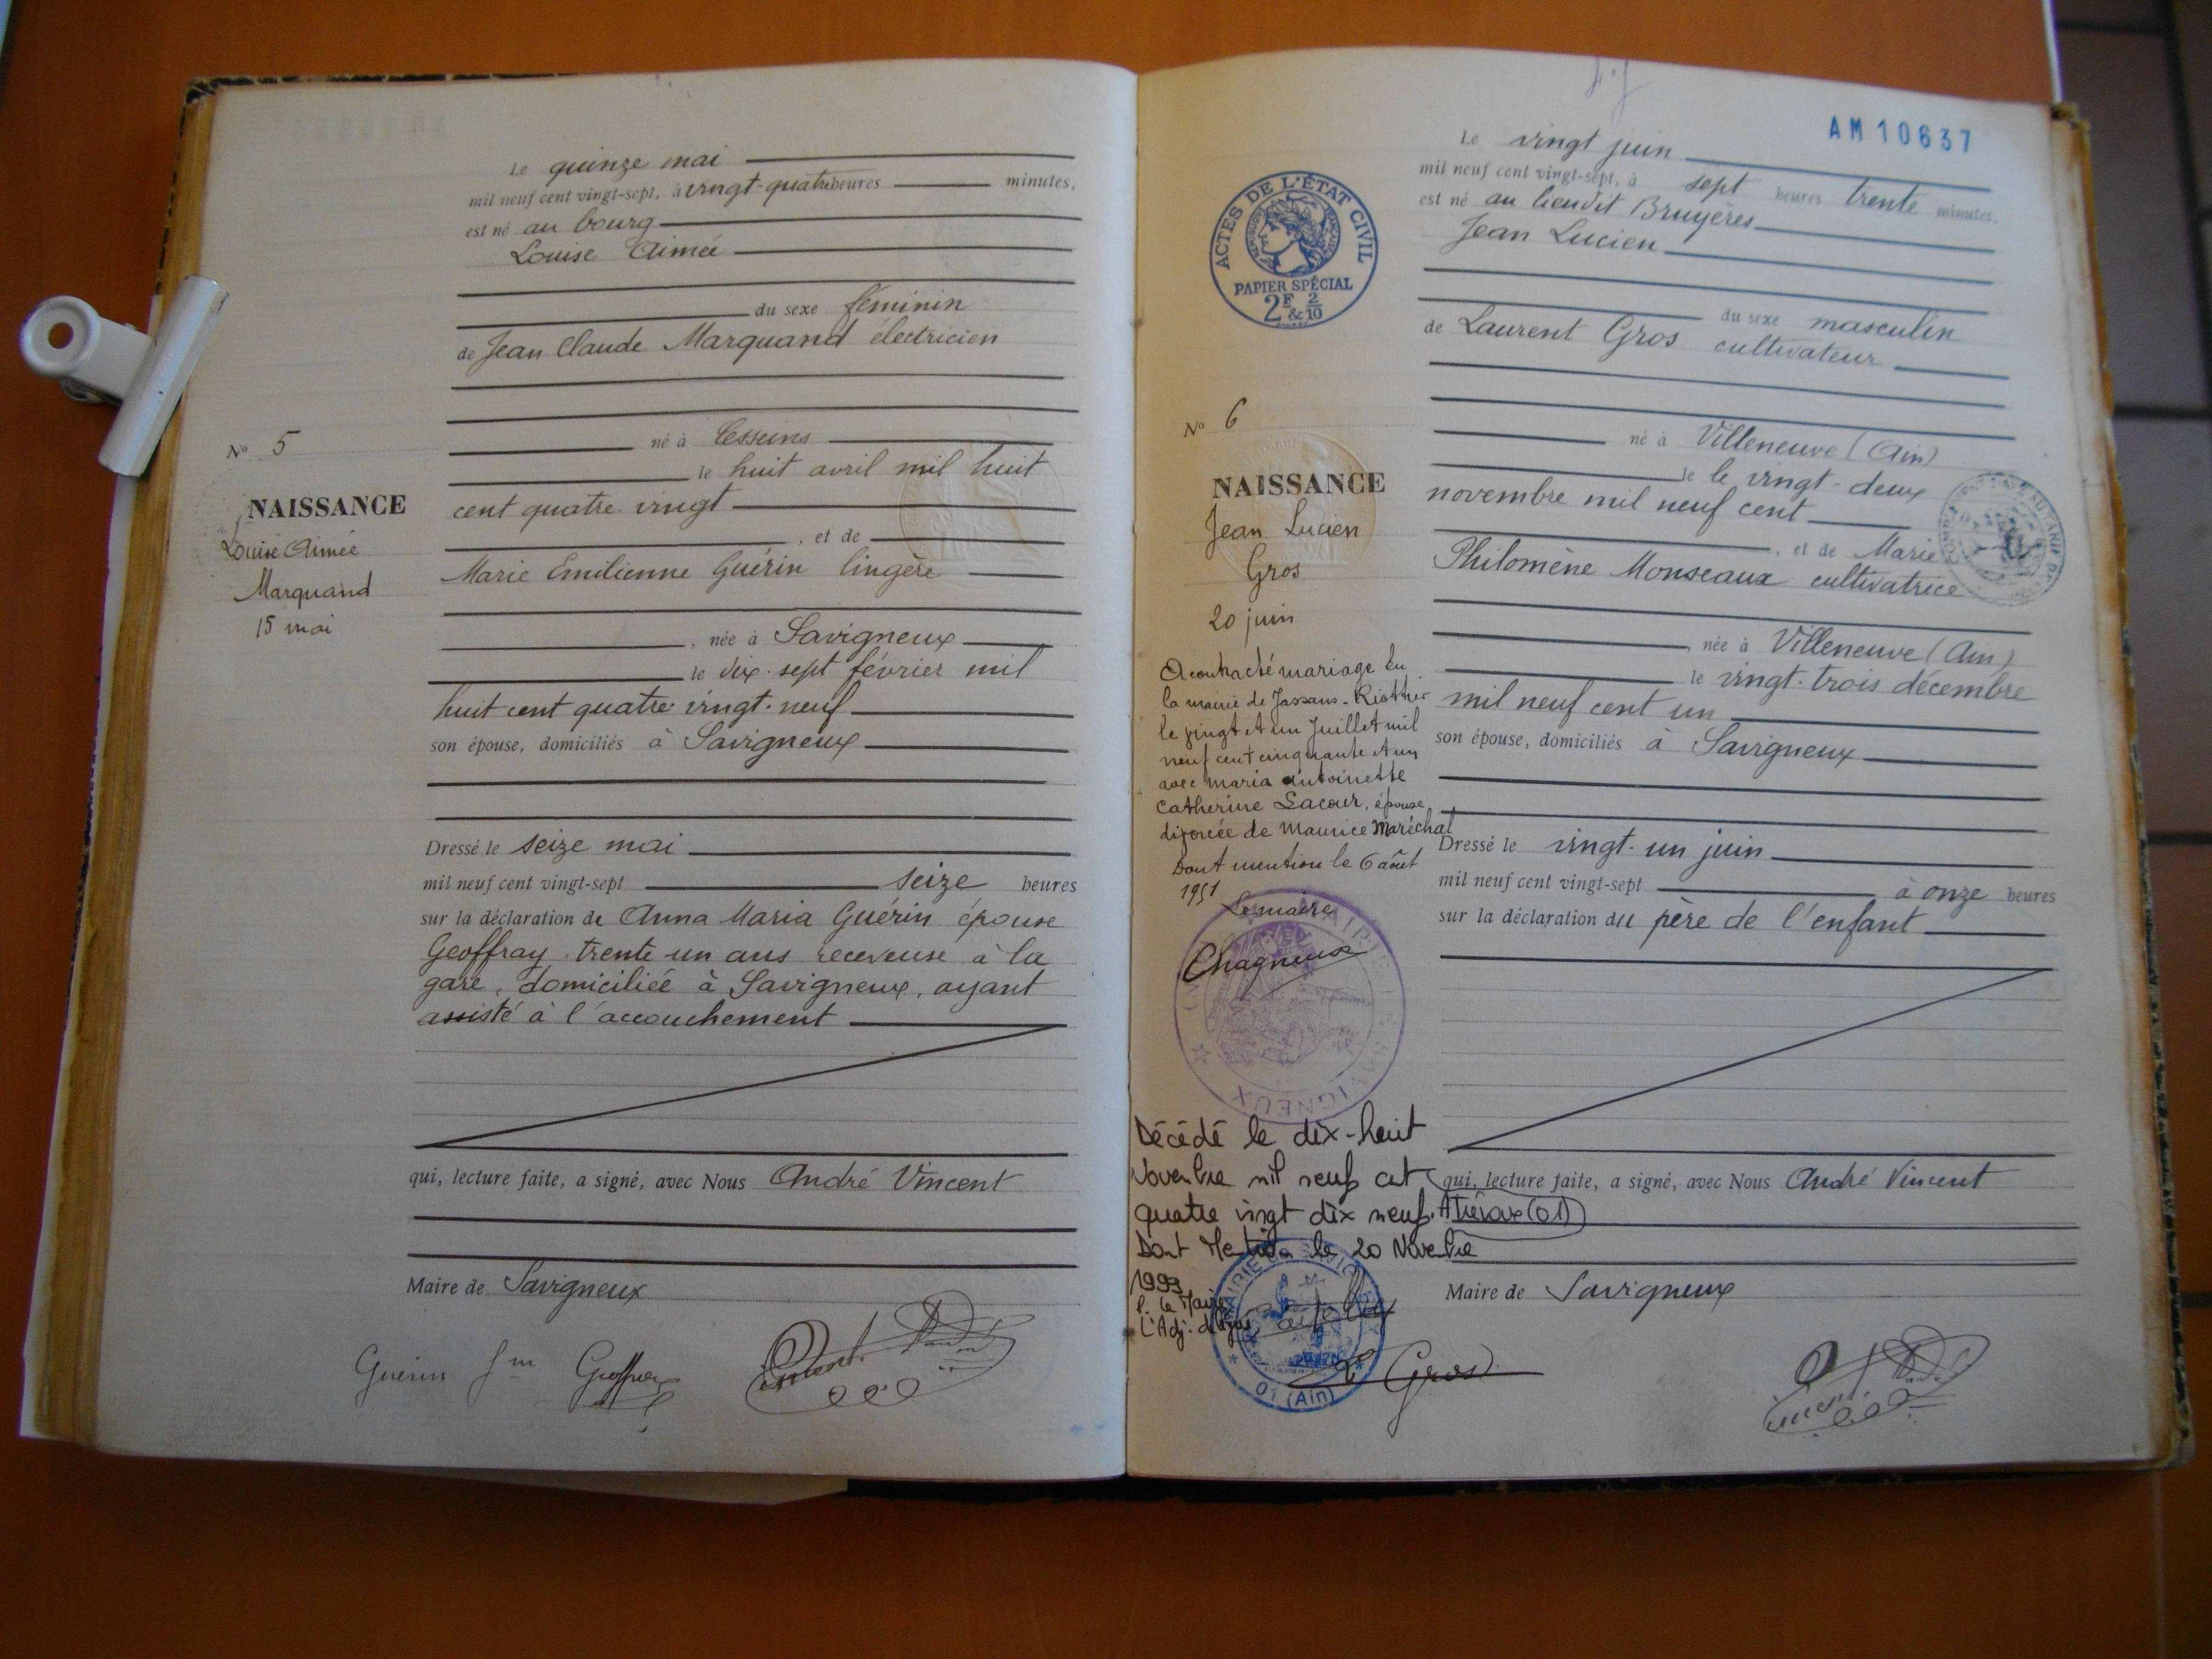 Le quinze mai
mil neuf cent vingt-sept, à vingt-quatre heures minutes,
est né au bourg
Louise Aimée
du sexe féminin
de Jean Claude Marquand électricien
né à Cesseins
le huit avril mil huit
cent quatre vingt
, et de
Marie Emilienne Guérin lingère
, née à Savigneux
le dix-sept février mil
huit cent quatre vingt-neuf
son épouse, domiciliés à Savigneux
Dressé le seize mai
mil neuf cent vingt-sept seize heures
sur la déclaration de Anna Maria Guérin épouse
Geoffray trente un ans receveuse à la
gare, domiciliée à Savigneux, ayant
assisté à l'accouchement
qui, lecture faite, a signé, avec Nous André Vincent
Maire de Savigneux
Guérin fme Geoffray
Vincent
N° 5
NAISSANCE
Louise Aimée
Marquand
15 mai
AM 10637
Le vingt juin
mil neuf cent vingt-sept, à sept heures trente minutes,
est né au lieudit Bruyères
Jean Lucien
du sexe masculin
de Laurent Gros cultivateur
né à Villeneuve (Ain)
le le vingt-deux
novembre mil neuf cent
, et de Marie
Philomène Monseaux cultivatrice
, née à Villeneuve (Ain)
le vingt-trois décembre
mil neuf cent un
son épouse, domiciliés à Savigneux
Dressé le vingt-un juin
mil neuf cent vingt-sept à onze heures
sur la déclaration du père de l'enfant
qui, lecture faite, a signé, avec Nous André Vincent
Maire de Savigneux
Gros
ACTES DE L'ÉTAT CIVIL
PAPIER SPÉCIAL
2F & 2/10
N° 6
NAISSANCE
Jean Lucien
Gros
20 juin
A contracté mariage en
la mairie de Jassans-Riottier
le vingt et un Juillet mil
neuf cent cinquante et un
avec Maria Antoinette
Catherine Lacour, épouse
divorcée de Maurice Maréchal
Dont mention le 6 août
1951
Le maire
Chagneux
MAIRIE SAVIGNEUX
Décédé le dix-huit
Novembre mil neuf cent
quatre vingt dix neuf. A Trévoux (01)
Dont Mention le 20 Novembre
1999
P. Le Maire
L'Adj. délégué
MAIRIE DE SAVIGNEUX
01 (Ain)